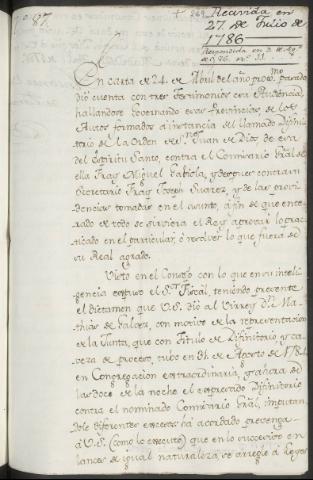 n.º 87.
Recivida en
27 de Julio de
1786
Respondida en 3 de Ag.to
de 1786. n.º 11
En carta de 24. de Abril del año prox.mo pasado
dió cuenta con tres Testimonios esa Presidencia,
hallandose Governando esas Provincias, de los
Autos formados á instancia del llamado Difini-
torio de la Orden de S.n Juan de Dios, de esa
del Espiritu Santo, contra el Comisario Gral de
ella Fray Miguel y despues contra su
Secretario Fray Josef Suarez, y de las provi-
dencias tomadas en el asunto, á fin de que ente-
rado de todo se sirviera el Rey aprovar lo prac-
ticado en el particular, ó resolver lo que fuera de
su Real agrado.
Visto en el Consejo con lo que en su inteli-
gencia expuso el S.or Fiscal, teniendo presente
el dictamen que V.S. dió al Virrey D.n Ma-
thias de Galvez, con motivo de la representacion
de la Junta, que con Titulo de Difinitorio, y ca-
veza de proceso, tubo en de Agosto de 1784
en Congregacion extraordinaria, y á hora de
las doce de la noche el expresado Difinitorio
contra el nominado Comisario Gral, imputan-
dole diferentes excesos: ha acordado prevenga
á V.S. (como lo executo) que en lo succesivo en
lances de igual naturaleza, se arregle á Leyes